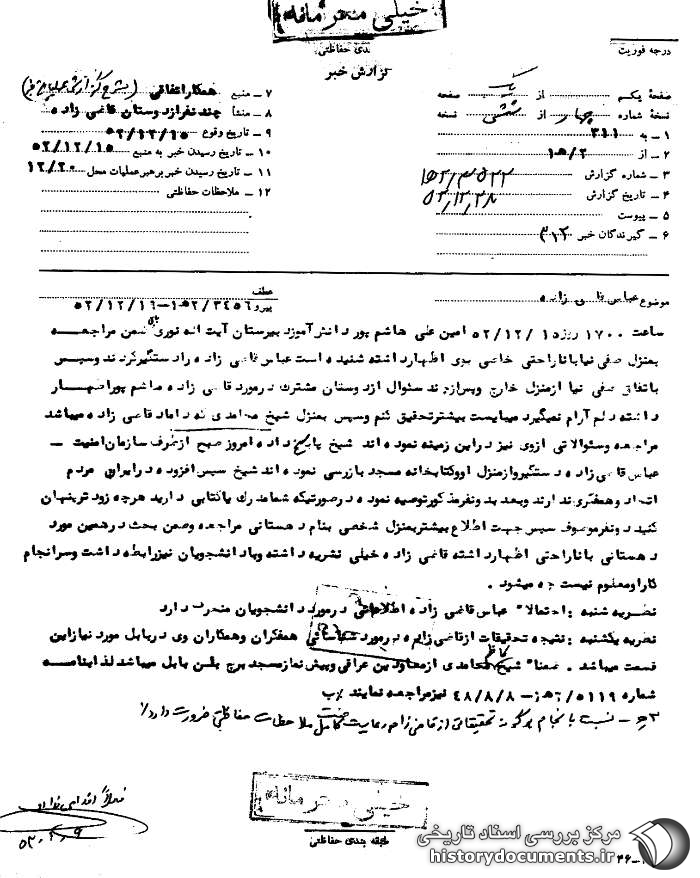 خیلی محرمانه
درجه فوریت
بندی حفاظتی
گزارش خبر
صفحهٔ یکم از یک صفحه
نسخهٔ شماره چهار از ششی نسخه
۱ – به ۳۱۱
۲ – از ۲/ه۱
۳ – شماره گزارش
۴ – تاریخ گزارش
۵ – پیوست
۶ – گیرندگان خبر ۳۱۲
۷ – منبع همکار اتفاقی
۸ – منشأ چند نفر از دوستان قاضی زاده
۹ – تاریخ وقوع ۵۲/۱۲/۱۵
۱۰ – تاریخ رسیدن خبر به منبع ۵۲/۱۲/۱۵
۱۱ – تاریخ رسیدن خبر برهبر عملیات محل ۱۲/۲۰
۱۲ – ملاحظات حفاظتی
موضوع عباس قاضی زاده
عطف
پیرو ۳۴۵۶/ه۲ – ۵۲/۱۲/۱۶
ساعت ۱۷۰۰ روز ۱۵/۱۲/۵۲ امین علی هاشم پور دانش آموز دبیرستان آیت اله نوری ضمن مراجعه
بمنزل صفی نیا با ناراحتی خاصی بوی اظهار داشته شنیده است عباس قاضی زاده را دستگیر کردند وسپس
باتفاق صفی نیا از منزل خارج وپس از چند سئوال از دوستان مشترک در مورد قاضی زاده هاشم پور اظهار
داشته دلم آرام نمیگیرد میبایست بیشتر تحقیق کنم وسپس بمنزل شیخ محامدی که داماد قاضی زاده میباشد
مراجعه وسئوالاتی از وی نیز در این زمینه نموده اند شیخ پاسخ داده امروز صبح از طرف سازمان امنیت –
عباس قاضی زاده دستگیر و از منزل او وکتابخانه مسجد بازرسی نموده اند شیخ سپس افزوده در ایران مردم
اتحاد وهمفکری ندارند وبعد بدو نفر مذکور توصیه نموده در صورتیکه شما مدرک یا کتابی دارید هرچه زودتر پنهان
کنید دو نفر موصوف سپس جهت اطلاع بیشتر بمنزل شخصی بنام دهستانی مراجعه وضمن بحث در همین مورد
دهستانی با ناراحتی اظهار داشته قاضی زاده خیلی نشریه داشته وبا دانشجویان نیز رابطه داشت وسرانجام
کار او معلوم نیست چه میشود .
نظریه شنبه : احتمالا" عباس قاضی زاده اطلاعاتی در مورد دانشجویان منحرف دارد
نظریه یکشنبه : نتیجه تحقیقات از قاضی زاده در مورد همفکران وهمکاران وی در بابل مورد نیاز این
قسمت میباشد . ضمنا" شیخ کاظم محامدی از معاودین عراقی وپیش نماز مسجد برج بلن بابل میباشد لذا بنامه
شماره ۵۱۱۹/ه۲ – ۴۸/۸/۸ نیز مراجعه نمایند
۳ه – نسبت بانجام هرگونه تحقیقاتی از قاضی زاده رعایت کامل ملاحظات حفاظتی ضرورت دارد
خیلی محرمانه
طبقه بندی حفاظتی
فعلاً اقدامی ندارد
مرکز بررسی اسناد تاریخی
historydocuments.ir